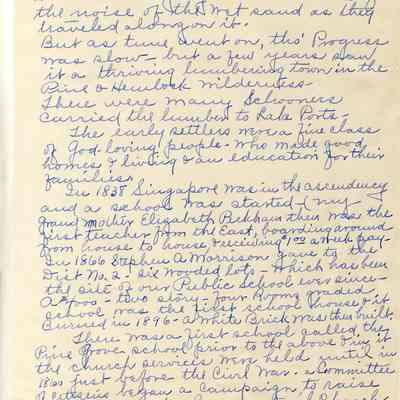 the noise of the wet sand as they
traveled along on it.
But as time went on, tho' Progress
was slow - but a few years saw
it a thriving lumbering town in the
Pine & Hemlock Wilderness -
There were many Schooners
carried the lumber to Lake Ports -
The early settlers were a fine class
of God loving people - who made good
homes & living & an education for their
families.
In 1838 Singapore was in the ascendency
and a school was started - (my
grand mother Elizabeth Peckham then was the
first teacher from the East, boarding around
from house to house & receiving 1.00 a week pay -
In 1866 Stephen A Morrison gave to the
Dist No. 2 - six wooded lots - which has been
the site of our Public school ever since -
A - two story - four rooms graded
school was the first school house & it
burned in 1896 - A White Brick was then built.
There was a first school called, the
Pine Grove school prior to the above & in it
the church services were held until in
1860 just before the Civil War. a committee
of citizens began a campaign to raise